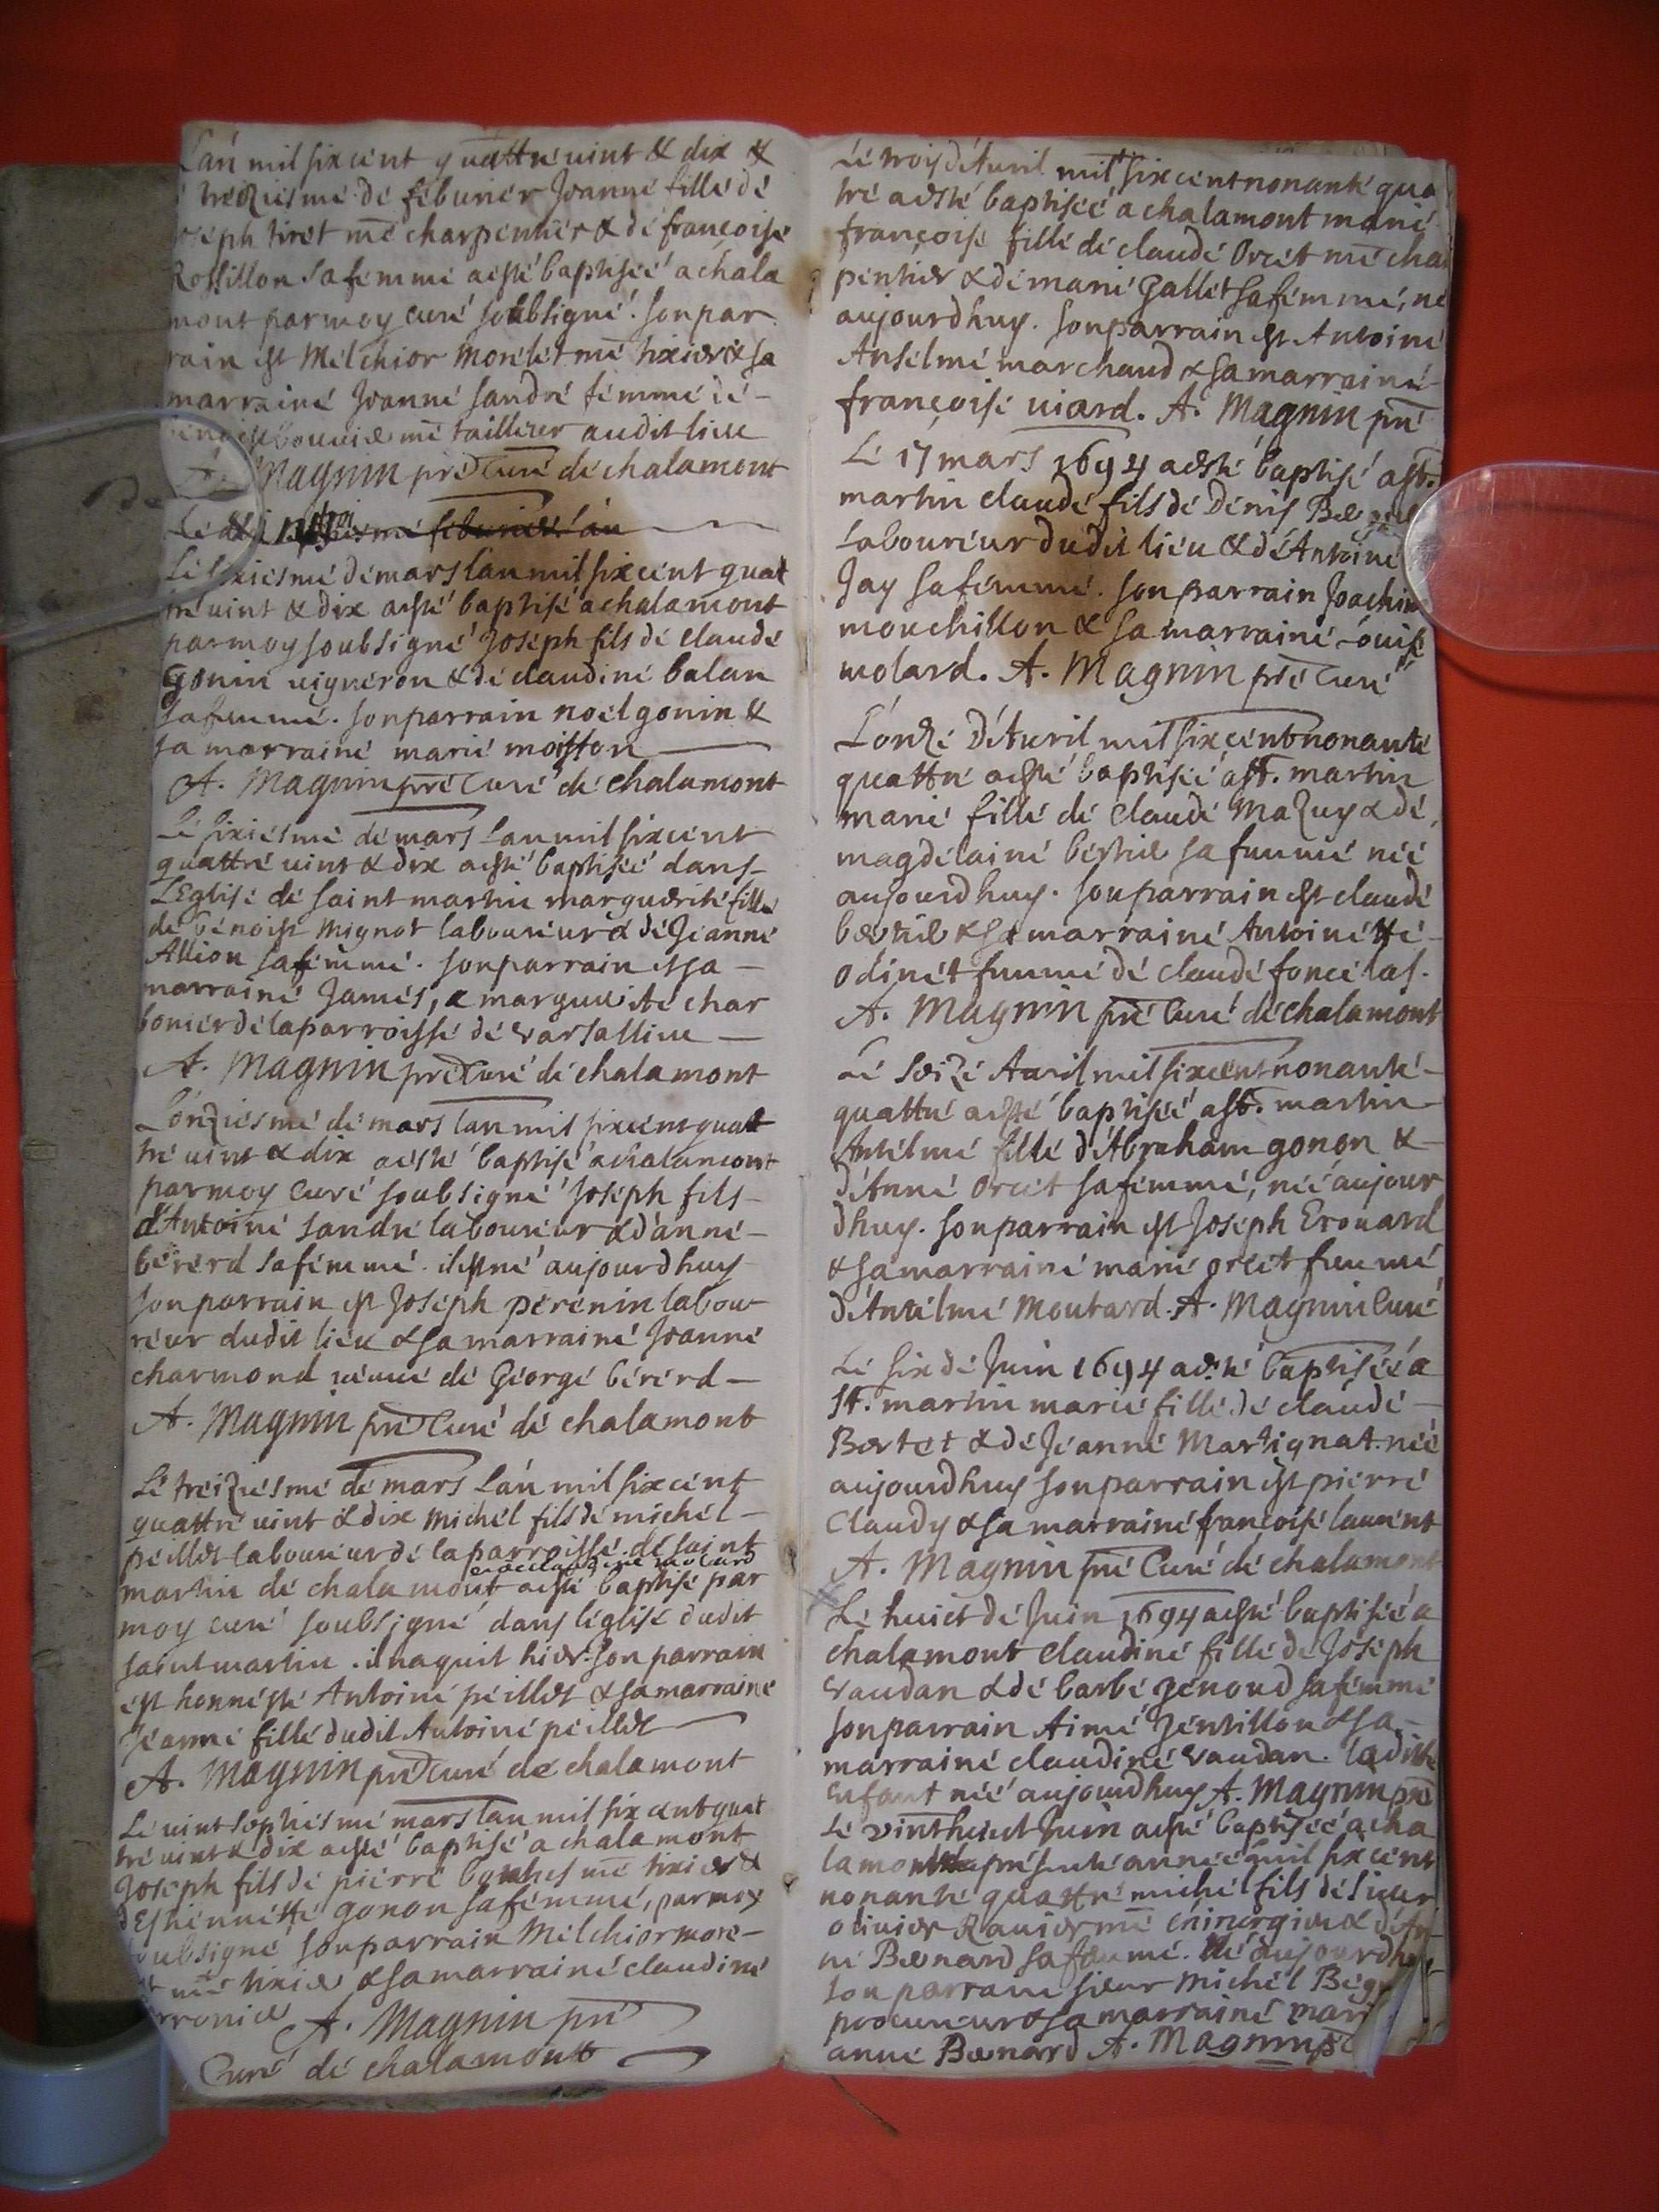 L'an mil six cent quattre vint & dix &
treziesme de feburier Joanne fille de
Joseph tiret me charpentier & de françoise
Rossillon sa femme aesté baptiseé a chala
mont par moy curé soubsigné. son par
rain est Melchior morelet me tixier & sa
marraine Joanne sandre femme de
me taillieur audit lieu
A. Magnin pre Curé de chalamont
Le
Le sixiesme de mars lan mil six cent quat
tre vint & dix aesté baptisé a chalamont
par moy soubsigné Joseph fils de claude
Gonin vigneron & de claudine balan
sa femme. son parrain noel gonin &
sa marraine marie moisson
A. Magnin pre Curé de chalamont
Le sixiesme de mars lan mil six cent
quattre vint & dix aesté baptiseé dans
L'Eglise de saint martin marguerite fille
de benoist Mignot laboureur & de Jeanne
Allion sa femme. son parrain et sa
marraine James, & marguerite char
bonier de la parroisse de Varsallieu
A. Magnin pre Curé de chalamont
L'onziesme de mars lan mil six cent quat
tre vint & dix aesté baptisé a chalamont
par moy curé soubsigné Joseph fils
d'Antoine sandre laboureur & d'anne
bererd sa femme. il est né aujourdhuy
son parrain est Joseph perenin labou
reur dudit lieu & sa marraine Joanne
charmond veuue de George bererd
A. Magnin pre Curé de chalamont
Le treiziesme de mars L'an mil six cent
quattre vint & dix Michel fils de michel
peillet laboureur de la parroisse de saint
et de claudine molard
martin de chalamont aesté baptisé par
moy curé soubsigné dans l'eglise dudit
saint martin. il naquit hier. son parrain
est honneste Antoine peillet & sa marraine
Jeanne fille dudit Antoine peillet
A. Magnin pre curé de chalamont
Le vint septiesme mars lan mil six cent quat
tre vint & dix aesté baptisé a chalamont
Joseph fils de pierre bouches me tixier &
d'Estiennette gonon sa femme, par moy
soubsigné son parrain Melchior more
me tixier & sa marraine claudine
A. Magnin pre
Curé de chalamont
Le trois d'Auril mil six cent nonante qua
tre aesté baptiseé a chalamont marie
françoise fille de claude Orcet me char
pentier & de marie Gallet sa femme, né
aujourdhuy. son parrain est Antoine
Anselme marchand & sa marraine
françoise uiard. A. Magnin pre
Le 17 mars 1694 aesté baptisé a st.
martin claude fils de Denis
Laboureur dudit lieu & de Antoine
Jay sa femme. son parrain Joachim
mouchillon & sa marraine Louise
molard. A. Magnin pre Curé
L'onze d'Auril mil six cent nonante
quattre aesté baptiseé a st. martin
marie fille de claude Mazuy & de
magdelaine bertié sa femme neé
aujourdhuy. son parrain est claude
bertié & sa marraine Antoinette
odinet femme de claude foncelas.
A. Magnin pre Curé de chalamont
Le seize Auril mil six cent nonante
quattre aesté baptiseé a st. martin
Antelme fille d'Abraham gonon &
d'Anne Orcet sa femme, neé aujour
dhuy. son parrain est Joseph Erouard
& sa marraine marie orcet femme
d'Antelme Moutard. A. Magnin Curé
Le six de Juin 1694 aesté baptiseé a
st. martin marie fille de claude
Bertet & de Jeanne Martignat. neé
aujourdhuy son parrain est pierre
Claudy & sa marraine françoise laurent
A. Magnin pre Curé de chalamont
Le huict de Juin 1694 aesté baptiseé a
chalamont claudine fille de Joseph
Vaudan & de barbe genoud sa femme
son parrain Aimé Jentillon & sa
marraine claudine Vaudan. ladite
enfant neé aujourdhuy A. Magnin pre
Le vinthuict Juin aesté baptiseé a cha
lamont presente anneé mil six cent
nonante quattre michel fils de sieur
olivier Ravier me chirurgien & d'An
ne Bernard sa femme. né aujourdhuy
son parrain sieur Michel
procureur & sa marraine
anne Bernard A. Magnin pre